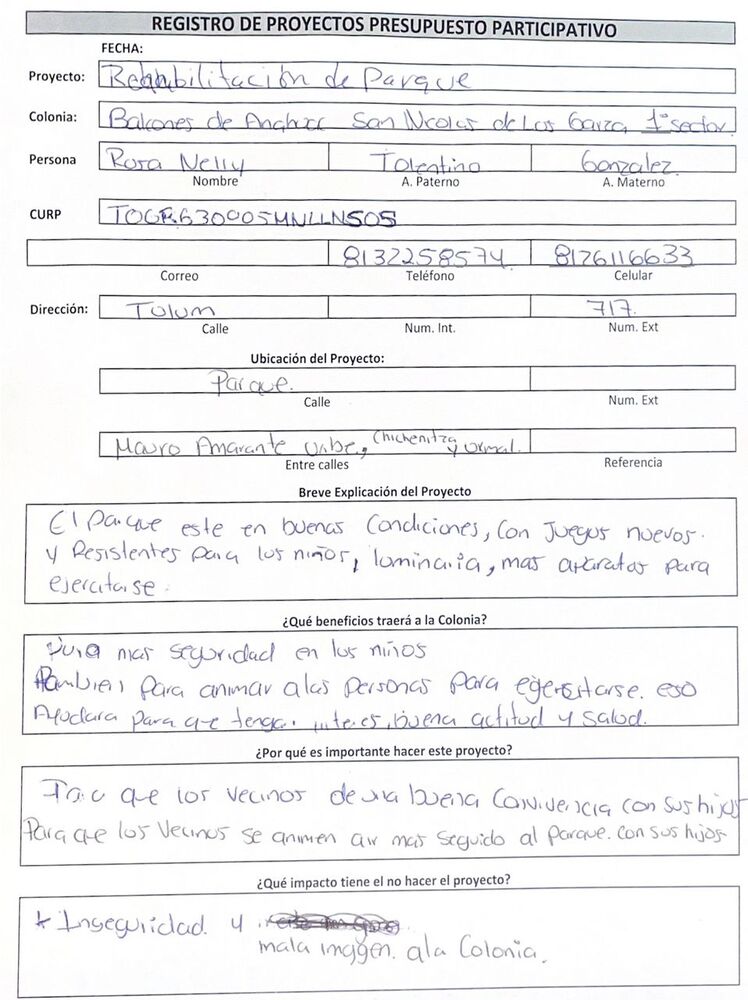 REGISTRO DE PROYECTOS PRESUPUESTO PARTICIPATIVO
FECHA:
Proyecto: Rehabilitación de Parque
Colonia: Balcones de Anahuac San Nicolas de Los Garza 1° sector.
Persona Rosa Nelly Tolentino Gonzalez.
Nombre A. Paterno A. Materno
CURP TOGR630005MNLLNS05
8132258574 8126116633
Correo Teléfono Celular
Dirección: Tulum 717.
Calle Num. Int. Num. Ext
Ubicación del Proyecto:
Parque.
Calle Num. Ext
Mauro Amarante Uribe, Chichenitza y Uxmal.
Entre calles Referencia
Breve Explicación del Proyecto
El parque este en buenas Condiciones, Con Juegos nuevos.
y Resistentes para los niños, luminaria, mas aparatos para
ejercitarse.
¿Qué beneficios traerá a la Colonia?
Para mas seguridad en los niños
tambien para animar alas personas para egersitarse. eso
Ayudara para que tengan interes, buena actitud y salud.
¿Por qué es importante hacer este proyecto?
Para que los vecinos de una buena Convivencia con sus hijos
Para que los Vecinos se animen air mas seguido al Parque. con sus hijos
¿Qué impacto tiene el no hacer el proyecto?
* Inseguridad y
mala imagen. ala Colonia.